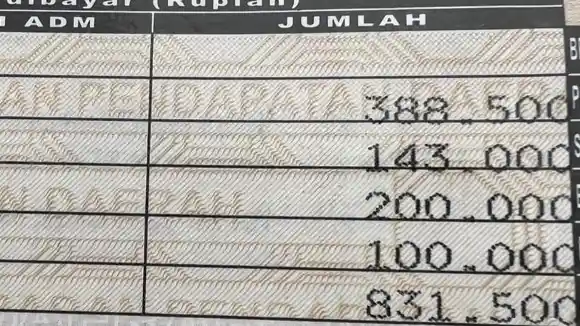 dibayar (Rupiah)
ADM JUMLAH
388.500
143.000
200.000
100.000
831.500